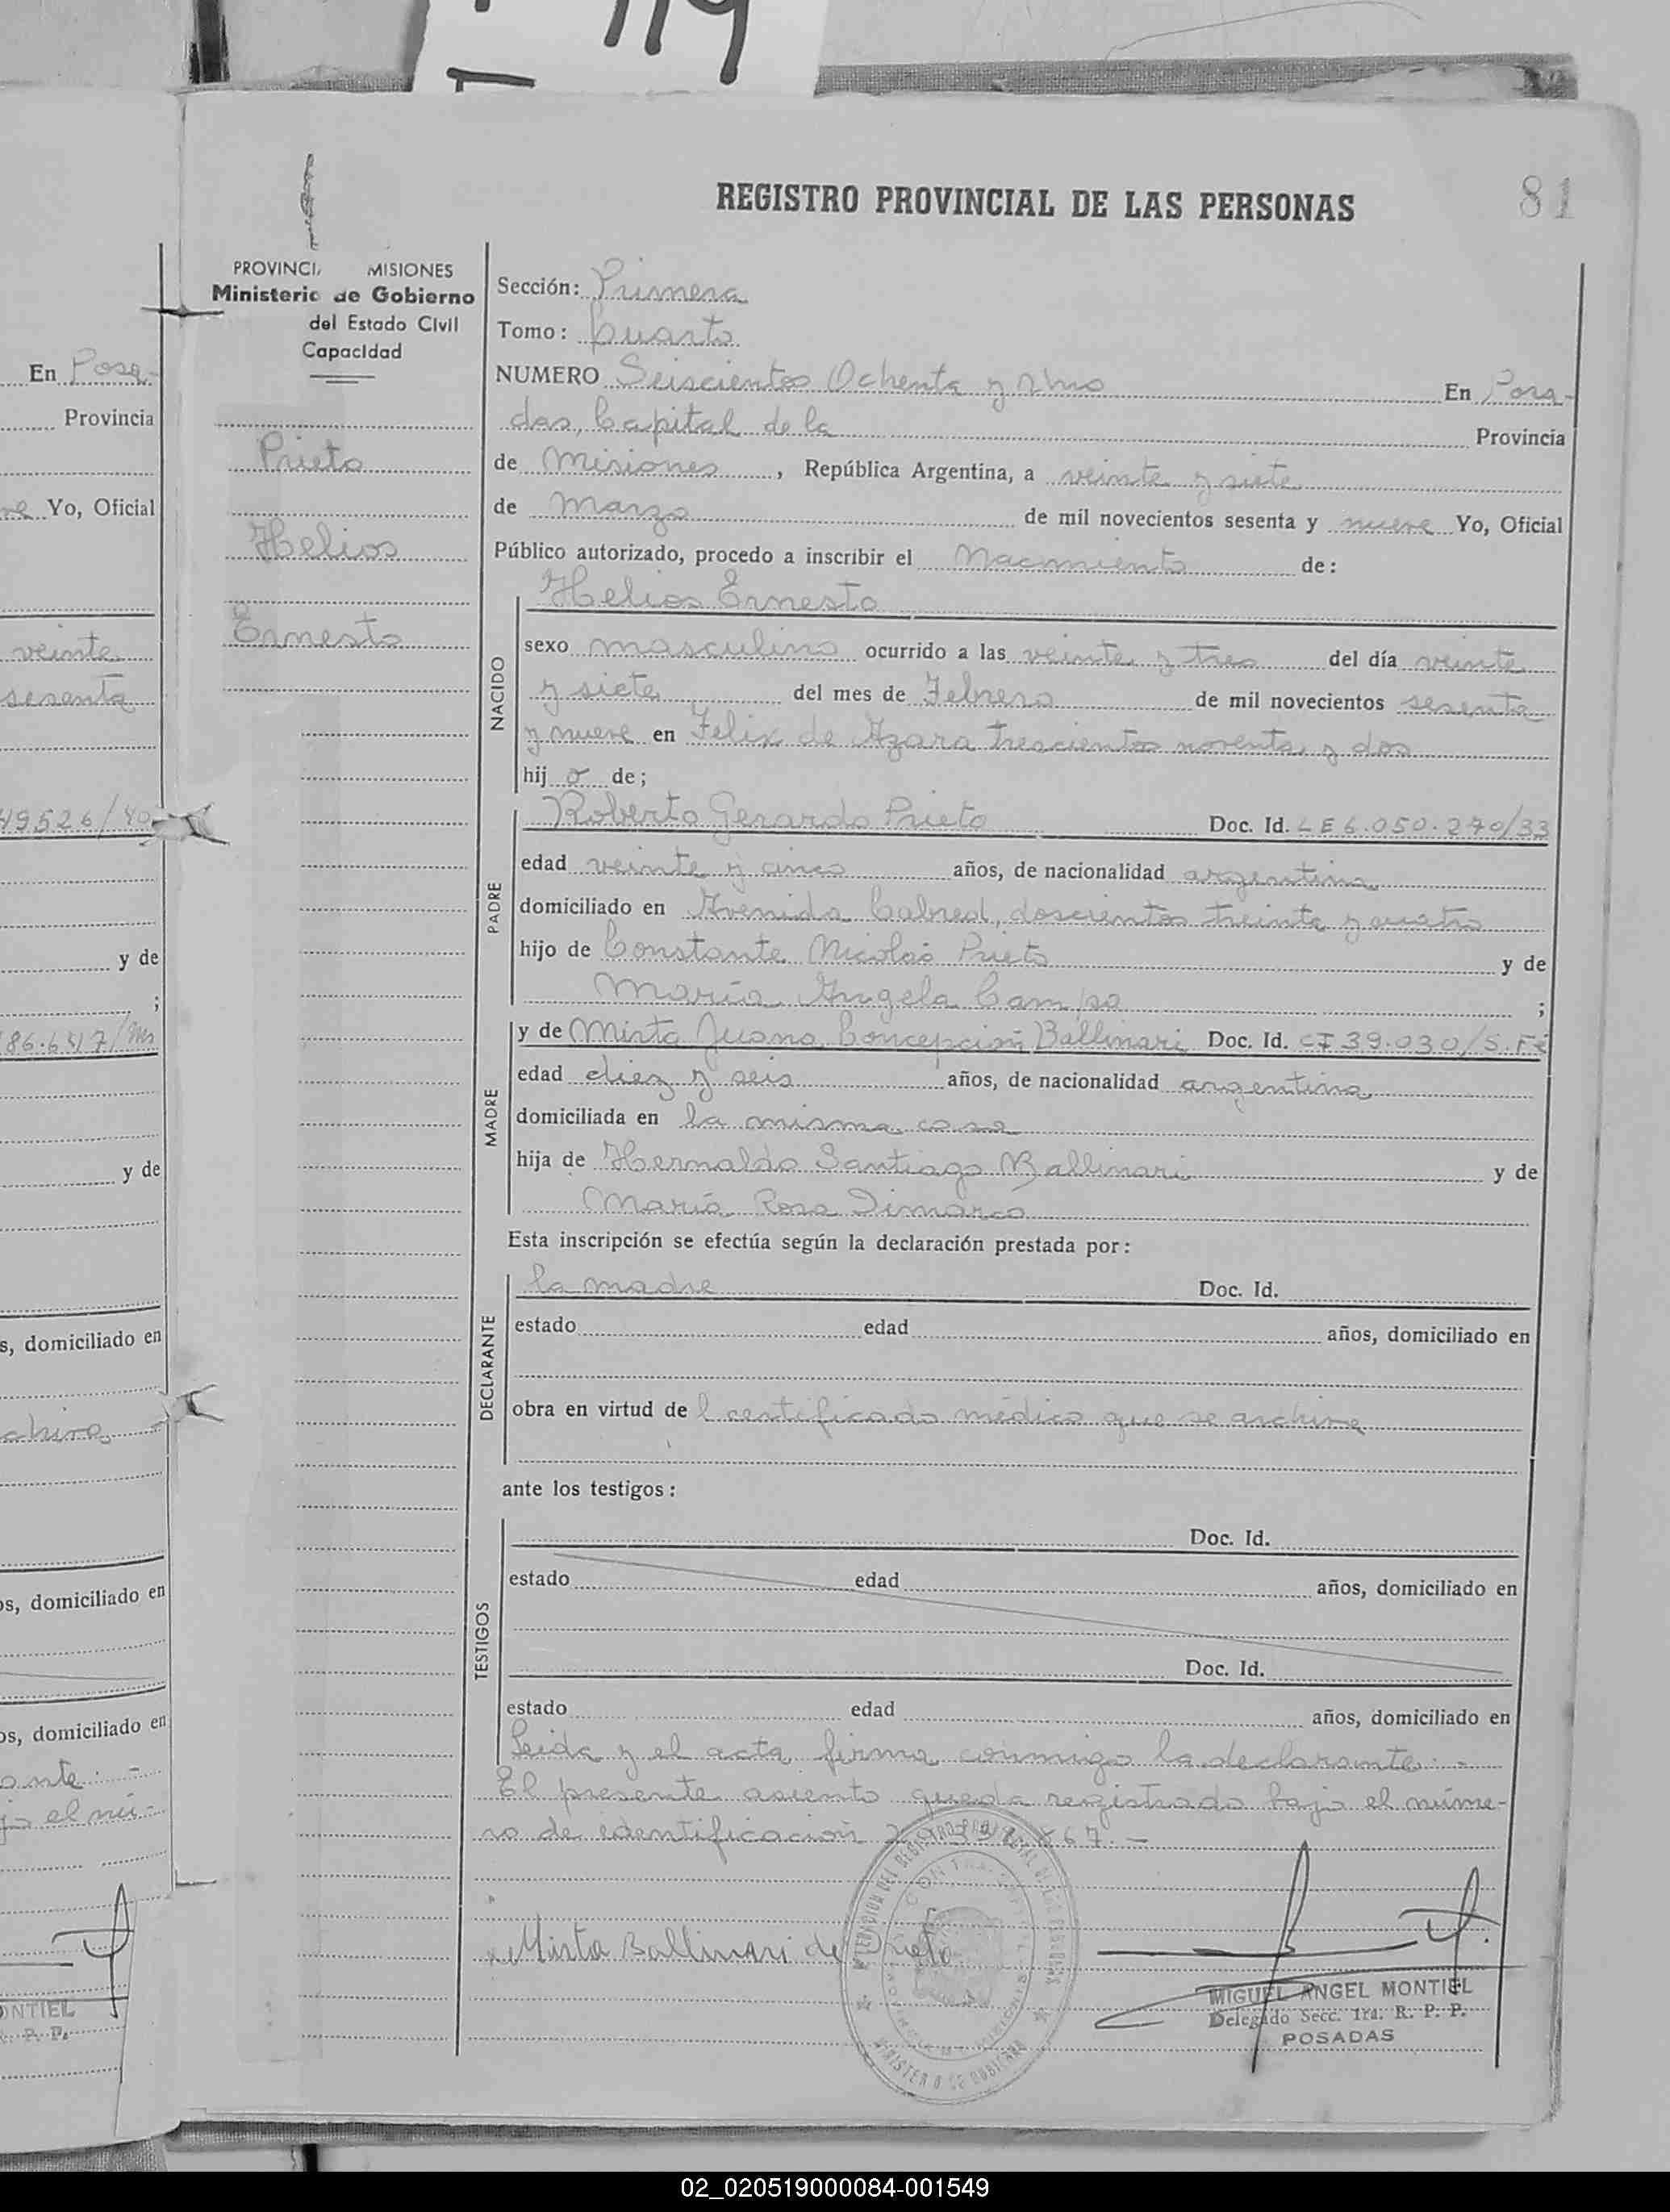 119
REGISTRO PROVINCIAL DE LAS PERSONAS
81
PROVINCI MISIONES
Ministerio de Gobierno
del Estado Civil
Capacidad
Prieto
Helios
Ernesto
Sección: Primera
Tomo: Cuarto
NUMERO Seiscientos Ochenta y Uno En Posa-
das, Capital de la Provincia
de Misiones, República Argentina, a veinte y siete
de Marzo de mil novecientos sesenta y nueve Yo, Oficial
Público autorizado, procedo a inscribir el Nacimiento de:
Helios Ernesto
NACIDO
sexo masculino ocurrido a las veinte y tres del día veinte
y siete del mes de Febrero de mil novecientos sesenta
y nueve en Felix de Azara trescientos noventa y dos
hijo de;
PADRE
Roberto Gerardo Prieto Doc. Id. LE 6.050.270/33
edad veinte y cinco años, de nacionalidad argentina
domiciliado en Avenida Cabred, doscientos treinta y cuatro
hijo de Constante Nicolás Prieto y de
María Angela Campo ;
MADRE
y de Mirta Juana Concepción Ballinari Doc. Id. CI 39.030/S.Fé
edad diez y seis años, de nacionalidad argentina
domiciliada en la misma casa
hija de Hernaldo Santiago Ballinari y de
María Rosa Dimarco
Esta inscripción se efectúa según la declaración prestada por:
DECLARANTE
la madre Doc. Id.
estado edad años, domiciliado en
obra en virtud del certificado médico que se archiva
ante los testigos:
TESTIGOS
Doc. Id.
estado edad años, domiciliado en
Doc. Id.
estado edad años, domiciliado en
Leida y el acta firma conmigo la declarante.-
El presente asiento queda registrado bajo el núme-
ro de identificación 867.-
Mirta Ballinari de Prieto
MIGUEL ANGEL MONTIEL
Delegado Secc. 1ra. R. P. P.
POSADAS
MINISTERIO DE GOBIERNO
En Posa-
Provincia
Yo, Oficial
veinte
sesenta
49526/40
y de
;
86.647/Ms
y de
s, domiciliado en
chiva
os, domiciliado en
os, domiciliado en
ante.-
jo el nú-
ONTIEL
R. P. P.
02_020519000084-001549